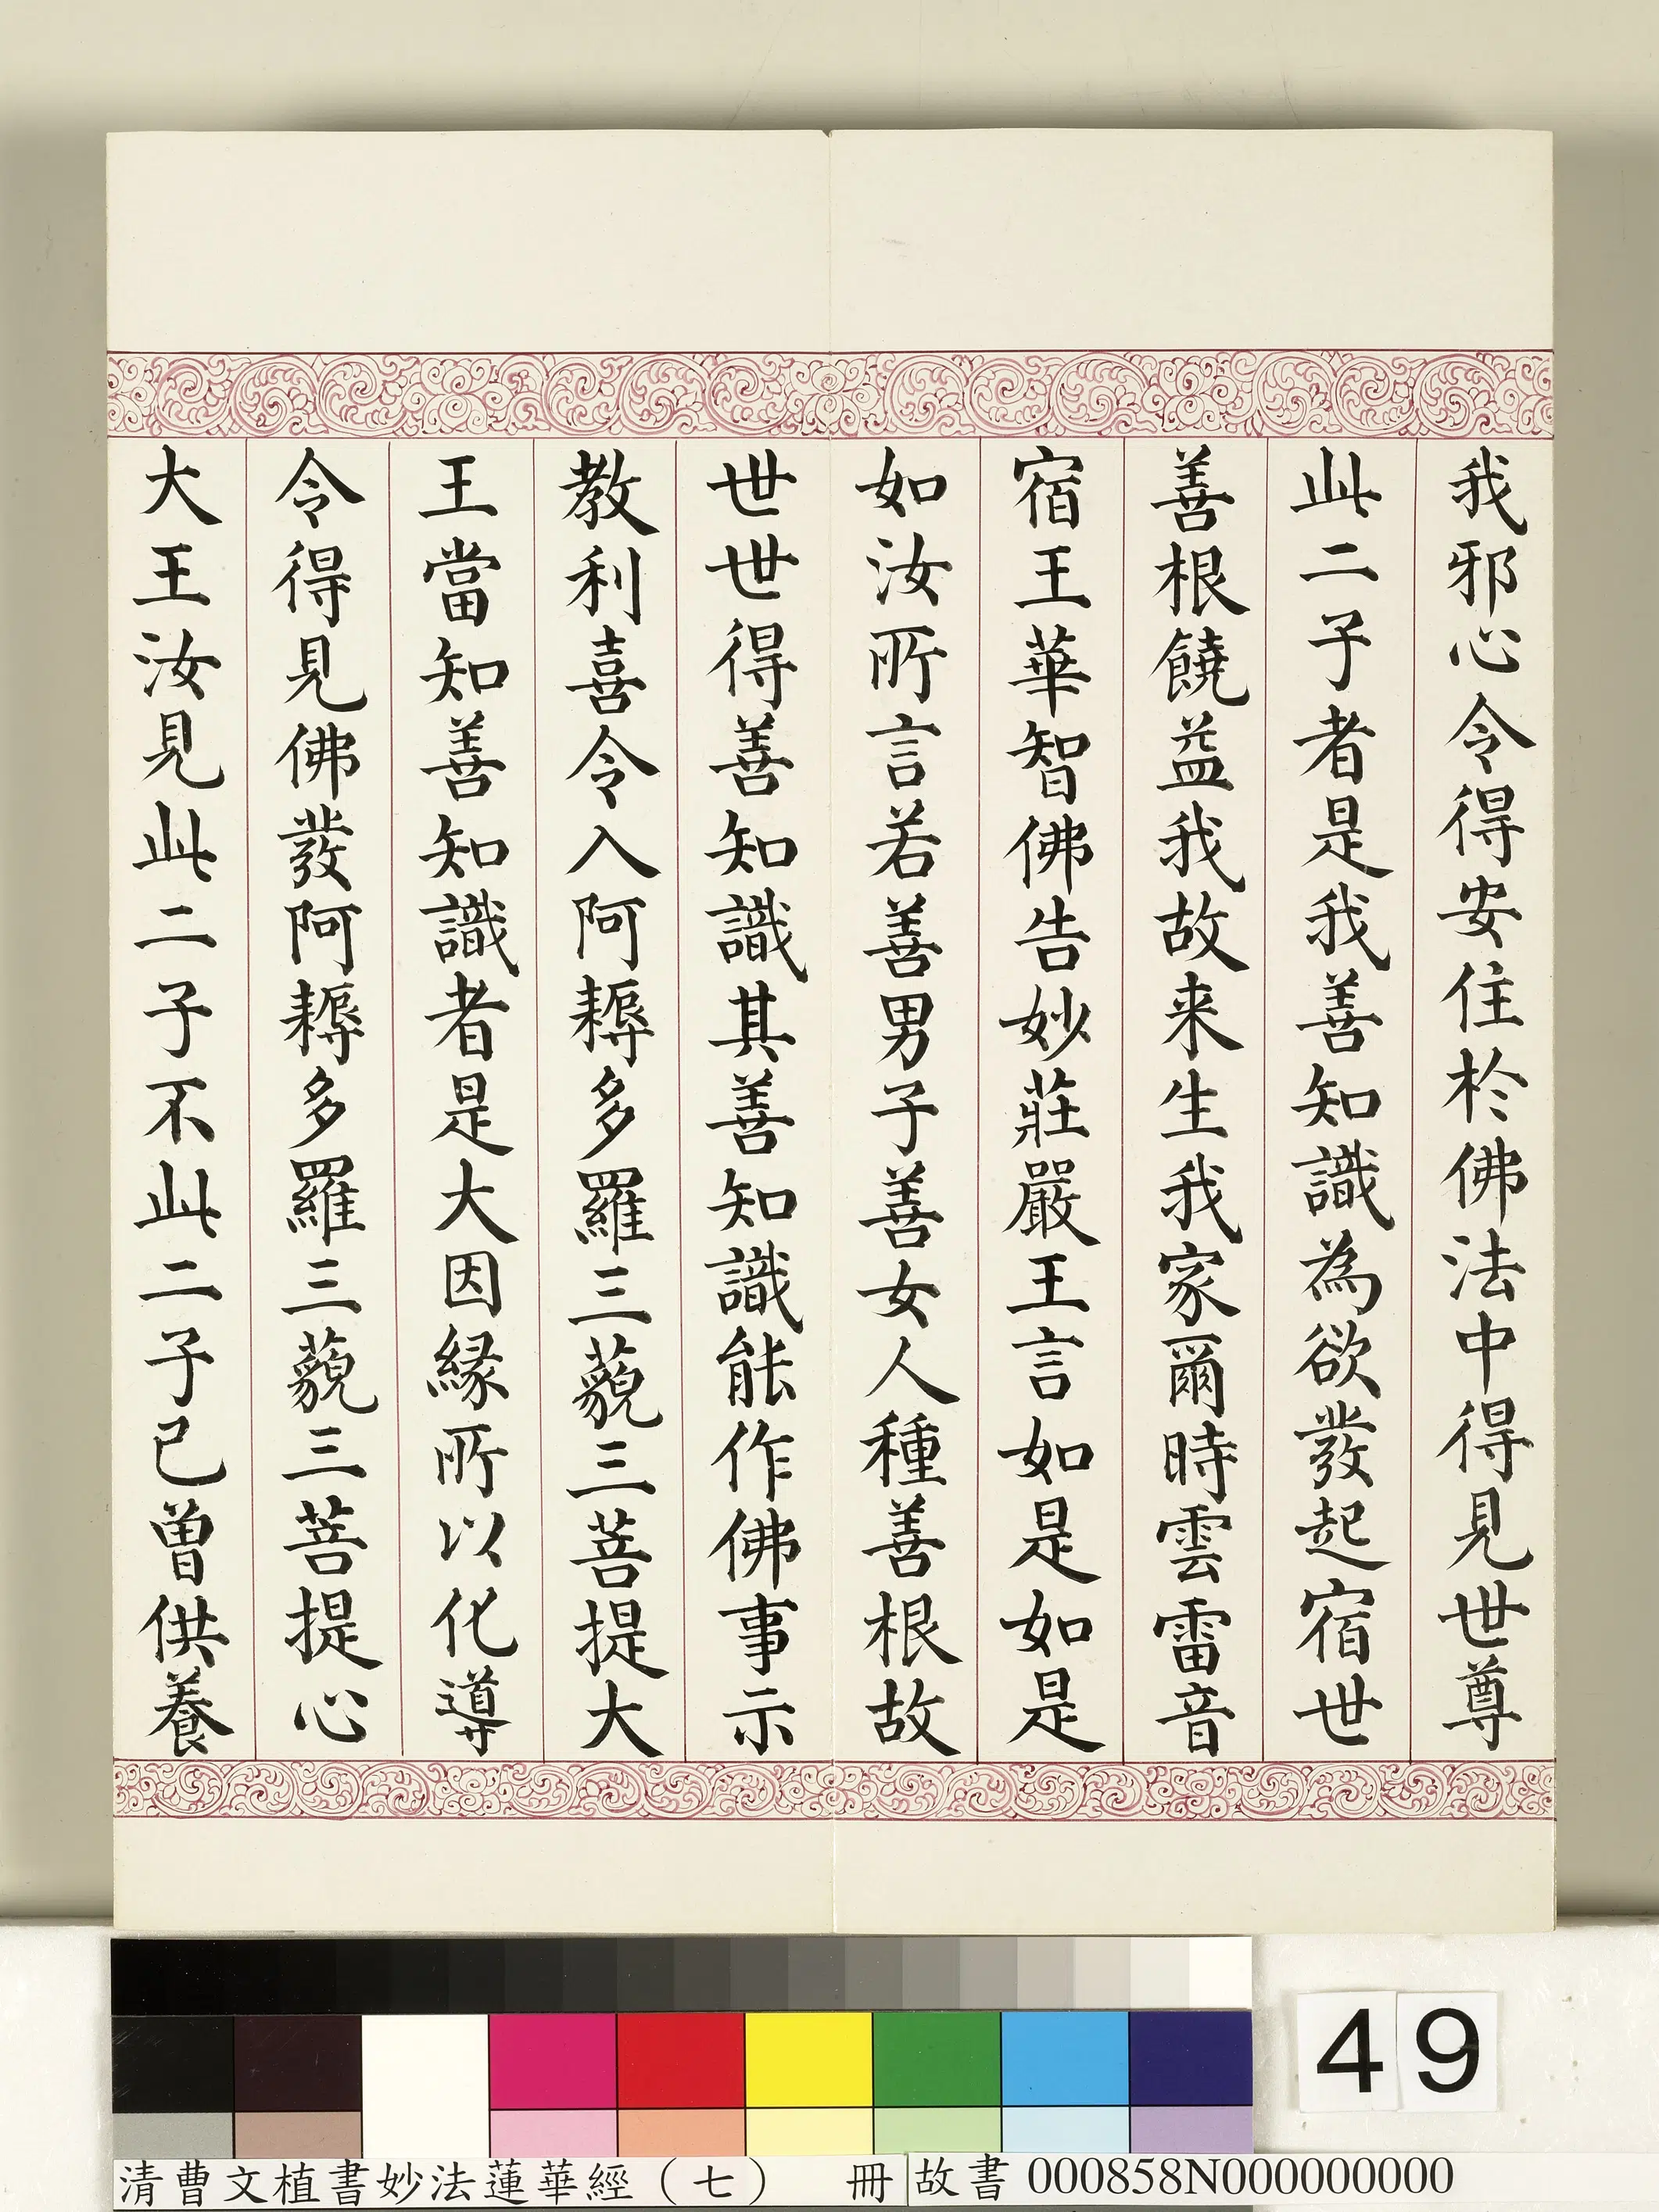 我邪心令得安住於佛法中得見世尊
此二子者是我善知識為欲發起宿世
善根饒益我故来生我家爾時雲雷音
宿王華智佛告妙莊嚴王言如是如是
如汝所言若善男子善女人種善根故
世世得善知識其善知識能作佛事示
教利喜令入阿耨多羅三藐三菩提大
王當知善知識者是大因緣所以化導
令得見佛發阿耨多羅三藐三菩提心
大王汝見此二子不此二子已曾供養
49
清曹文植書妙法蓮華經（七） 冊 故書 000858N000000000